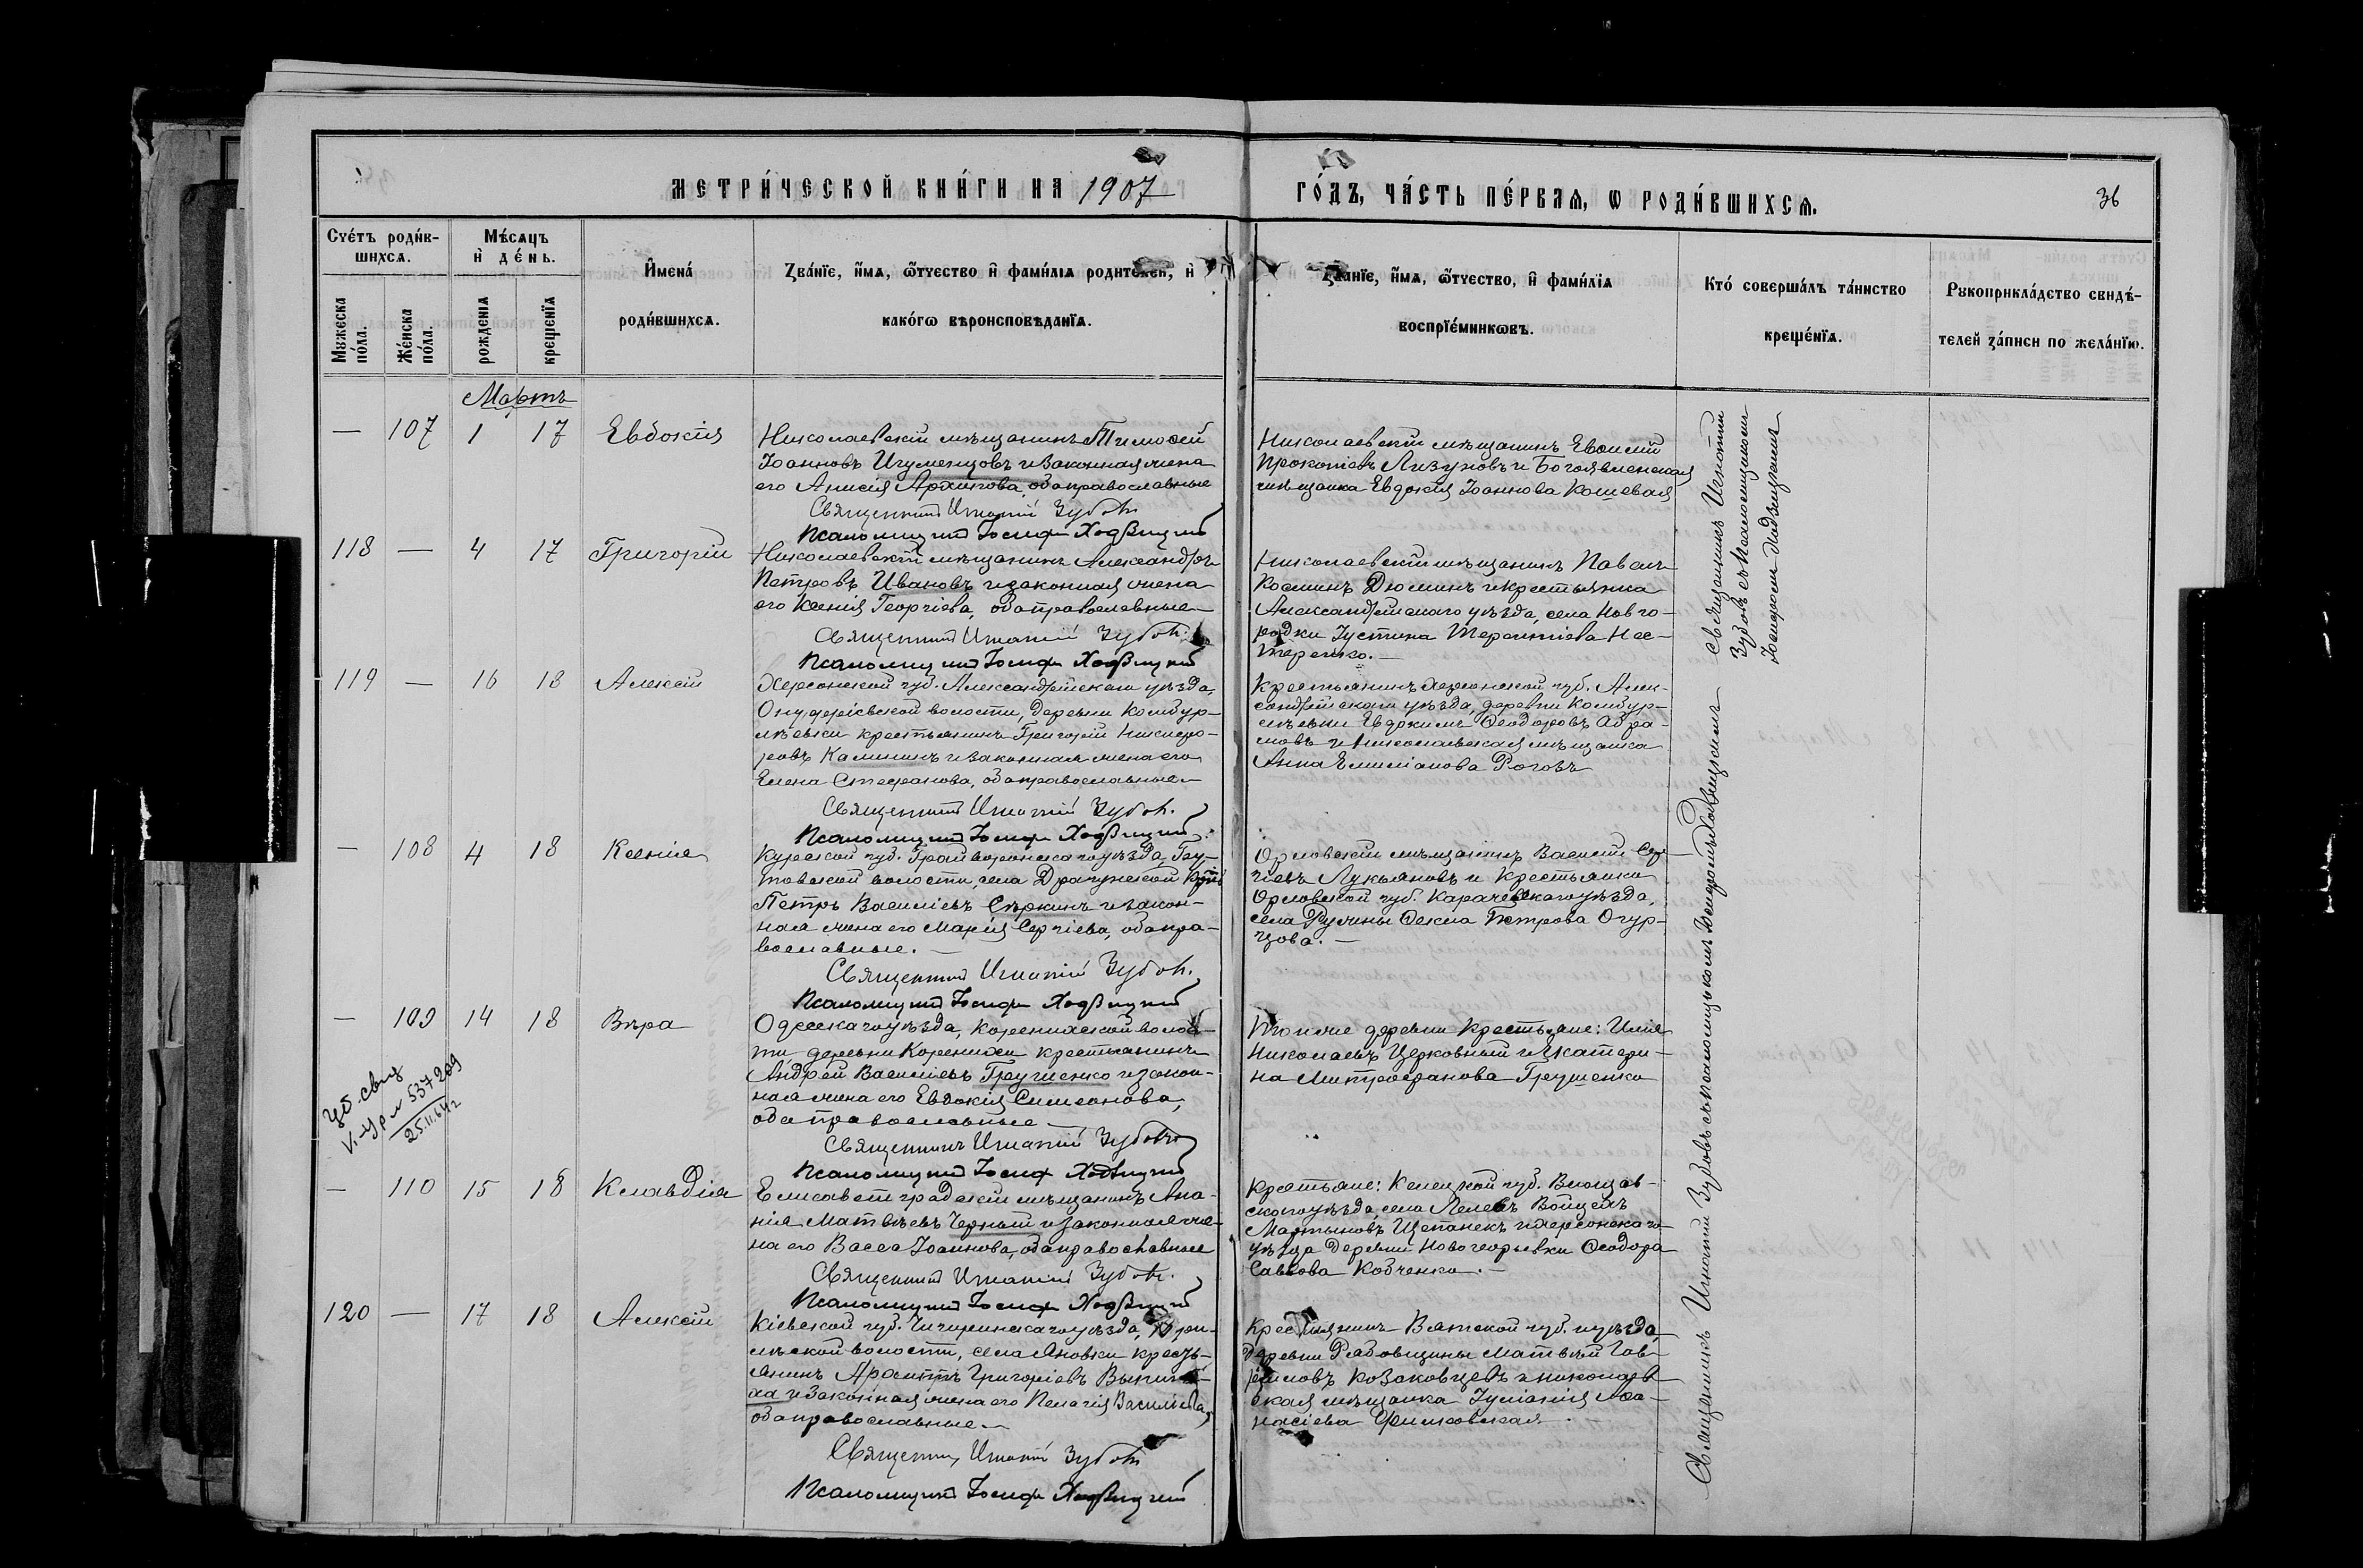 МЕТРИ́ЧЕСКОЙ КНИ́ГИ НА 1907 ГО́ДЪ, ЧА́СТЬ ПЕ́РВАѦ, Ѡ РОДИ́ВШИХСѦ.
36
Счетъ роди́в-
шихсѧ.
Мужеска
по́ла.
Же́нска
по́ла.
Мѣ́сѧцъ
и҆ де́нь.
рожденїѧ
крещенїѧ
И҆мена́
роди́вшихсѧ.
Зва́нїе, и҆́мѧ, ѻ҆́тчество и҆ фамі́лїѧ родителей, и҆
како́гѡ вѣроисповѣданїѧ.
Зва́нїе, и҆́мѧ, ѻ҆́тчество, и҆ фамі́лїѧ
воспрїе́мниковъ.
Кто́ соверша́лъ та́инство
креще́нїѧ.
Рукоприкла́дство свидѣ́-
телей за́писи по жела́нїю.
Мартъ
— 107 1 17 Евдокія
Николаевскій мѣщанинъ Тимоѳей
Іоанновъ Игуменцовъ и законная жена
его Анисія Архипова, оба православные
Священникъ Игнатій Зубовъ
Псаломщикъ Іосифъ Ходзицкій
Николаевскій мѣщанинъ Евѳимій
Прокопіевъ Лизуновъ и Богоявленская
мѣщанка Евдокія Іоаннова Кошевая
118 — 4 17 Григорій
Николаевскій мѣщанинъ Александръ
Петровъ Ивановъ и законная жена
его Ксенія Георгіева, оба православные
Священникъ Игнатій Зубовъ
Псаломщикъ Іосифъ Ходзицкій
Николаевскій мѣщанинъ Павелъ
Косминъ Дюминъ и крестьянка
Александрійскаго уѣзда, села Новго-
родки Іустина Терентіева Нес-
теренко. —
119 — 16 18 Алексій
Херсонской губ. Александрійскаго уѣзда,
Онуфріевской волости, деревни Камбур-
лѣевки крестьянинъ Григорій Никифо-
ровъ Калининъ и законная жена его
Елена Стефанова, оба православные
Священникъ Игнатій Зубовъ.
Псаломщикъ Іосифъ Ходзицкій
Крестьянинъ Херсонской губ. Алек-
сандрійскаго уѣзда, деревни Камбур-
лѣевки Евдокимъ Ѳеодоровъ Абра-
мовъ и Николаевская мѣщанка
Анна Емиліанова Роговъ
— 108 4 18 Ксенія
Курской губ. Грайворонскаго уѣзда,
волости, села
Петръ Василіевъ Сѣркинъ и закон-
ная жена его Марія Сергіева, оба пра-
вославные. —
Священникъ Игнатій Зубовъ.
Псаломщикъ Іосифъ Ходзицкій
Орловскій мѣщанинъ Василій Сер-
гіевъ Лукьяновъ и крестьянка
Орловской губ. Карачевскаго уѣзда,
села Ѳекла Петрова Огур-
цова. —
— 109 14 18 Вѣра
Одесскаго уѣзда, Коренихской волос-
ти, деревни Коренихи крестьянинъ
Андрей Василіевъ Грушенко и закон-
ная жена его Евдокія Симеонова,
оба православные —
Священникъ Игнатій Зубовъ
Псаломщикъ Іосифъ Ходзицкій
Той же деревни крестьяне: Илія
Николаевъ Церковный и Екатери-
на Митрофанова Грушенко
V-Ур № 537209
25.II.64 г
— 110 15 18 Клавдія
Елисаветградскій мѣщанинъ Ана-
нія Матвѣевъ Черный и законная же-
на его Васса Іоаннова, оба православные
Священникъ Игнатій Зубовъ.
Псаломщикъ Іосифъ Ходзицкій
Крестьяне: Келецкой губ. Влощов-
скаго уѣзда, села Лелевъ Войцехъ
Мартыновъ Щепанекъ и Херсонскаго
уѣзда деревни Новогеоргіевки Ѳеодора
Саввова Кобченко. —
120 — 17 18 Алексій
Кіевской губ. Чигиринскаго уѣзда,
волости, села Яновки кресть-
янинъ Григоріевъ
и законная жена его Пелагія Василіева,
оба православные —
Священникъ Игнатій Зубовъ
Псаломщикъ Іосифъ Ходзицкій
Крестьянинъ Вятской губ. и уѣзда,
деревни Рябовщины Матвѣй Гав-
риловъ Козаковцевъ и николаев-
ская мѣщанка Іуліанія Аѳа-
насіева Филиковская
Священникъ Игнатій
Зубовъ съ псаломщикомъ
Іосифомъ Ходзицкимъ
Священникъ Игнатій Зубовъ съ псаломщикомъ Іосифомъ Ходзицкимъ